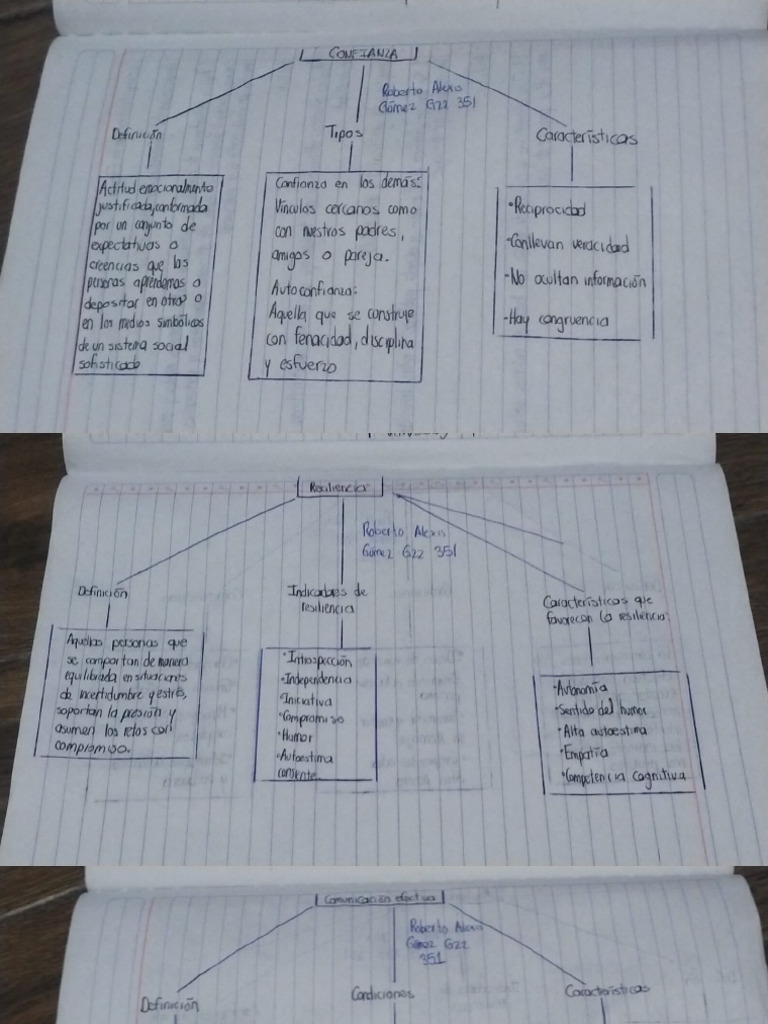 CONFIANZA
Roberto Alexis
Gómez G22 351
Definición
Actitud emocionalmente
justificada, conformada
por un conjunto de
expectativas o
creencias que las
personas aprendemos a
depositar en otros o
en los medios simbólicos
de un sistema social
sofisticado
Tipos
Confianza en los demás:
Vinculos cercanos como
con nuestros padres,
amigos o pareja.
Autoconfianza:
Aquella que se construye
con tenacidad, disciplina
y esfuerzo
Características
•Reciprocidad
-Conllevan veracidad
-No ocultan información
-Hay congruencia
Resiliencia
Roberto Alexis
Gómez G22 351
Definición
Aquellas personas que
se comportan de manera
equilibrada en situaciones
de incertidumbre y estrés,
soportan la presión y
asumen los retos con
compromiso.
Indicadores de
resiliencia
•Introspección
•Independencia
•Iniciativa
•Compromiso
•Humor
•Autoestima
Características que
favorecen la resiliencia:
•Autonomía
•Sentido del humor
•Alta autoestima
•Empatía
•Competencia cognitiva
Comunicación efectiva
Roberto Alexis
Gómez G22
351
Definición
Condiciones
Características